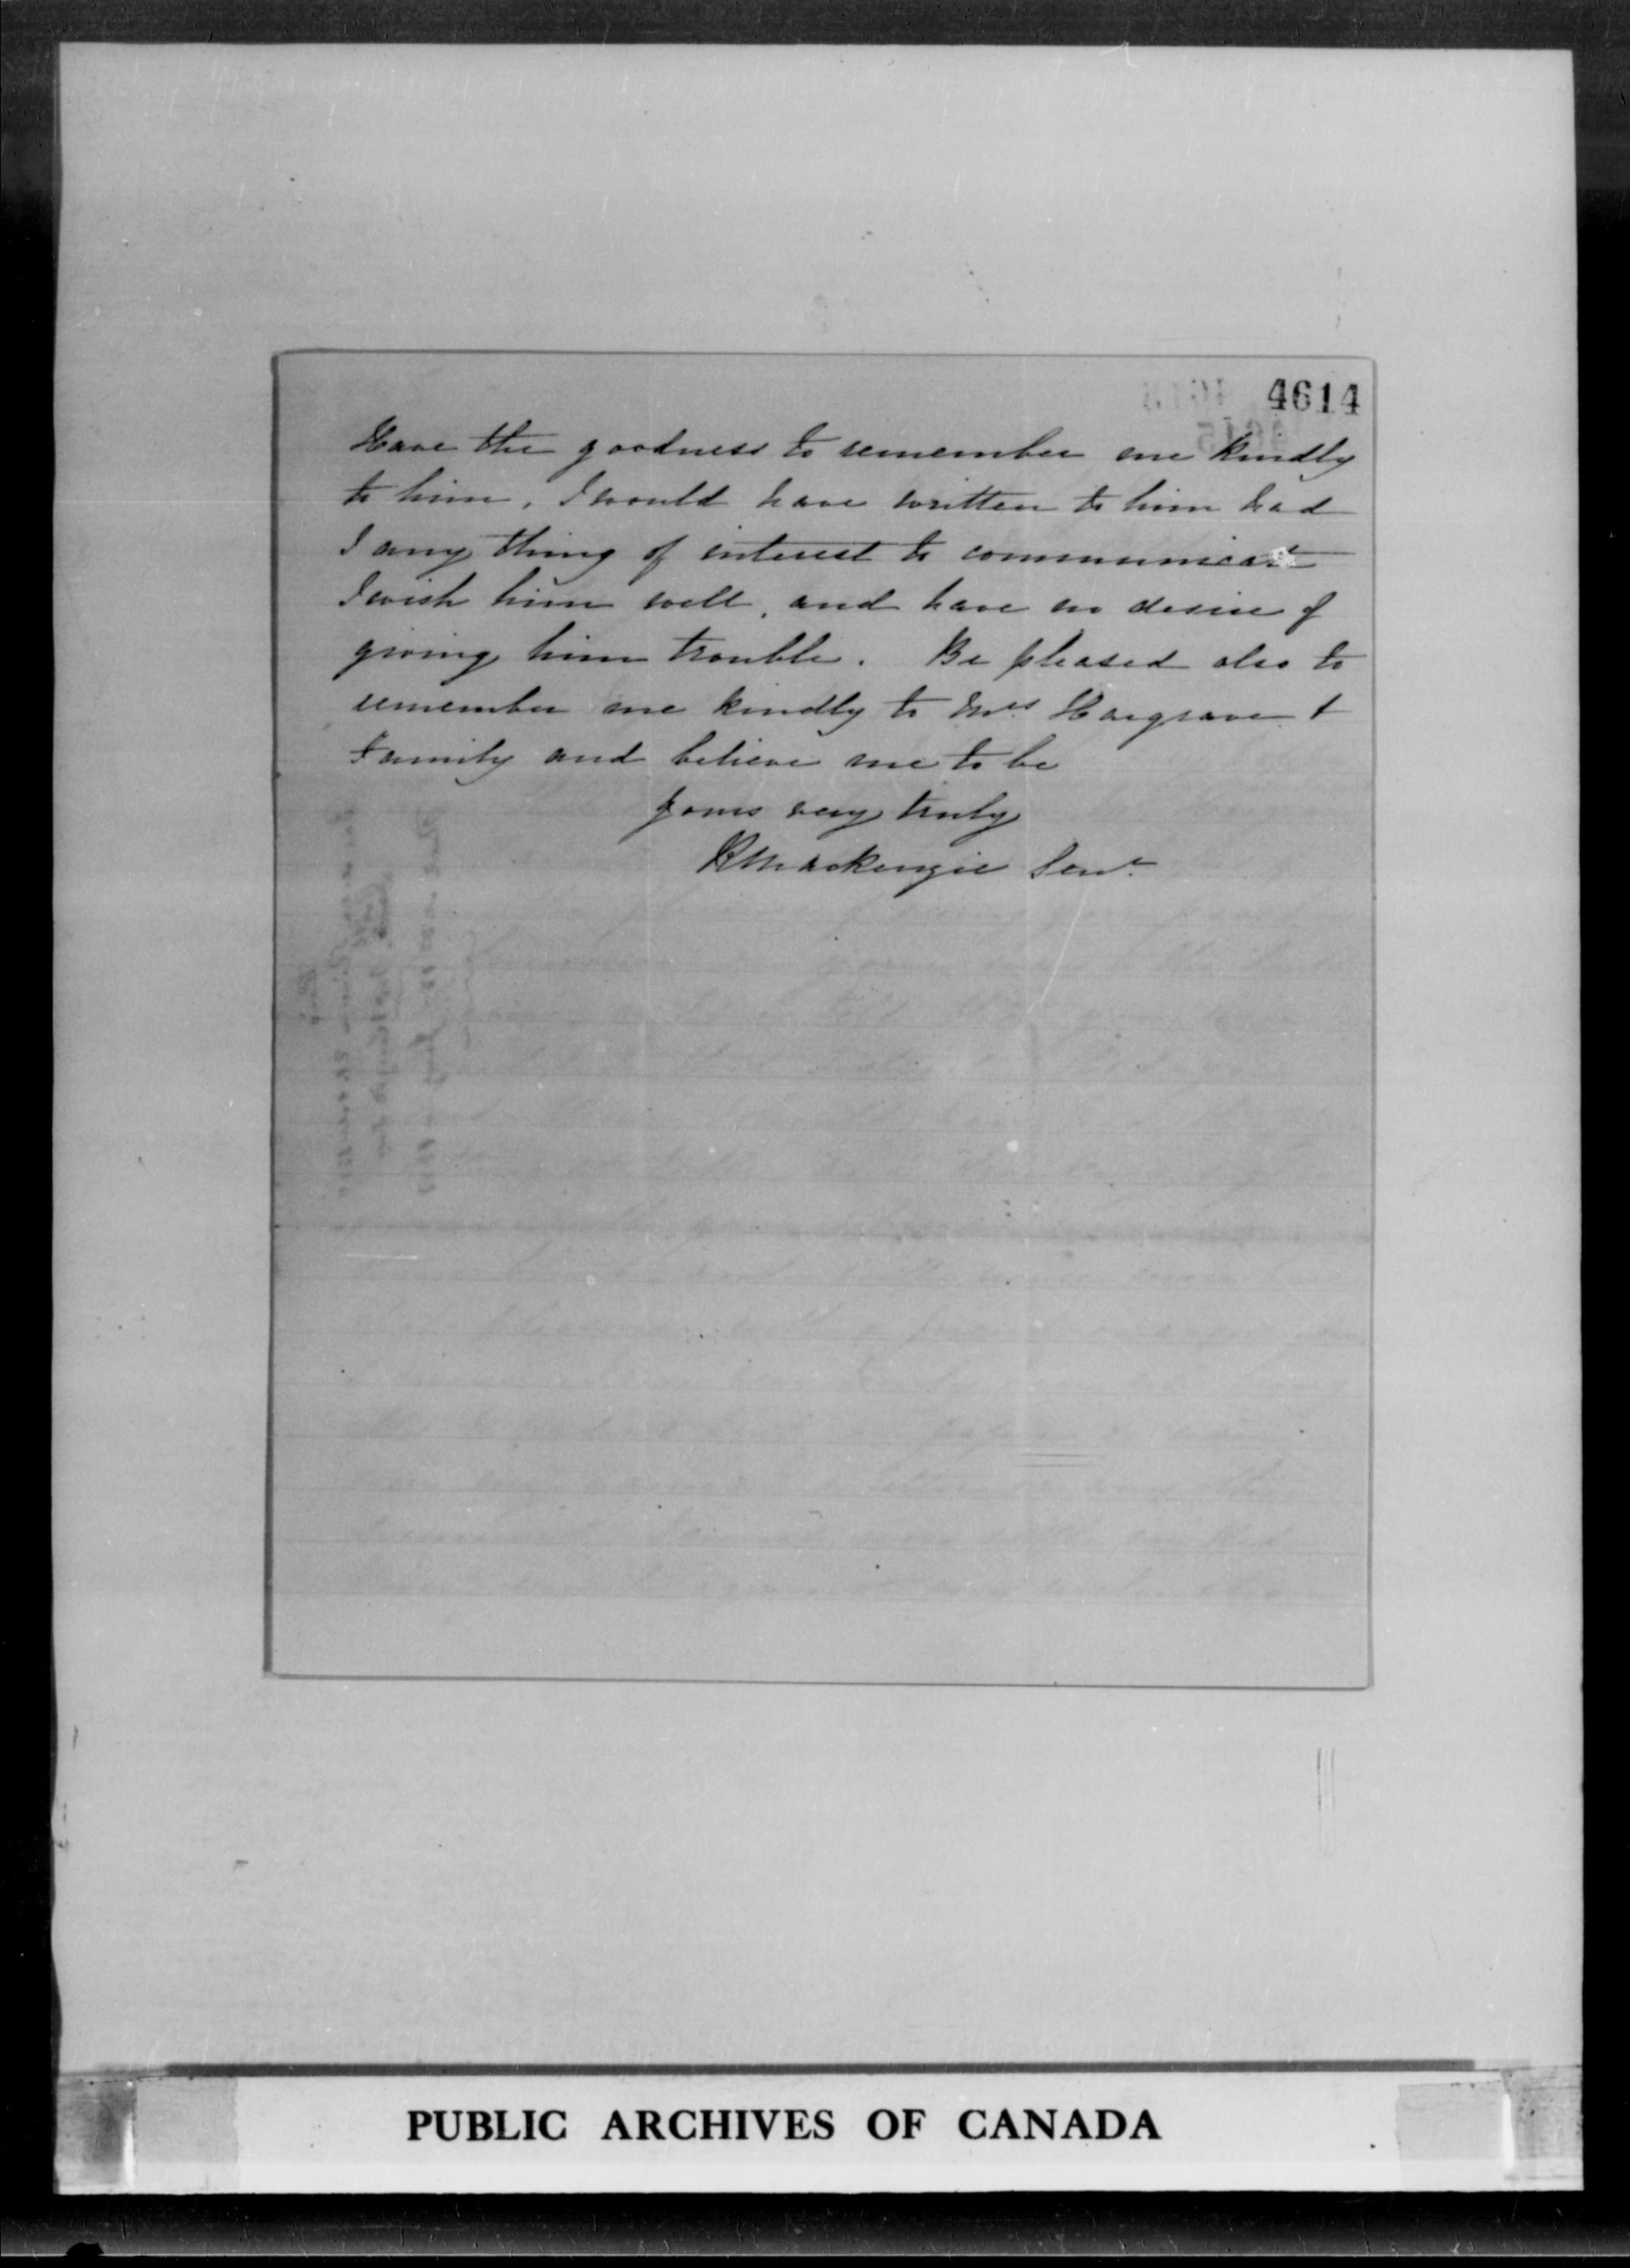 4614
Have the goodness to remember me kindly
to him, I would have written to him had
I any thing of interest to communicate
I wish him well, and have no desire of
giving him trouble. Be pleased also to
remember me kindly to Mrs Hargrave &
Family and believe me to be
yours very truly
RMacKenzie Senr
PUBLIC ARCHIVES OF CANADA